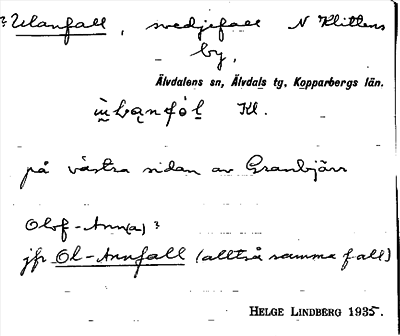 ? Ulanfall, svedjefall N Klittens
by,
Älvdalens sn, Älvdals tg, Kopparbergs län.
Kl.
på västra sidan av Granbjärr
Olof-Ann(a)?
jfr Ol-Annfall (alltså samma fall)
HELGE LINDBERG 1935.